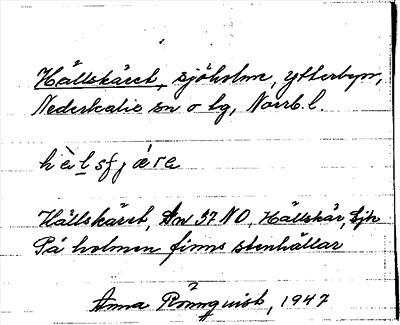 Hällskäret, sjöholme, Ytterbyn,
Nederkalix sn o tg, Norrb. l.
Hällskäret, An 37 NO, Hällskär, Sjk
På holmen finns stenhällar
Anna Rönnquist, 1947